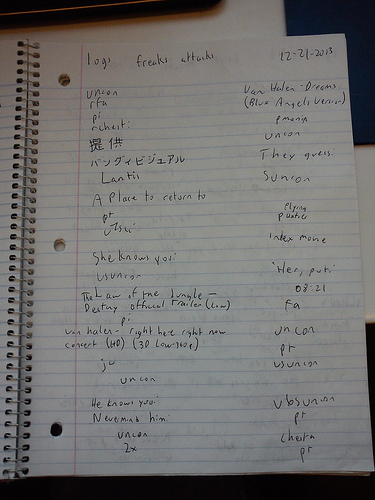 logs freaks attacks 12-21-2013
uncon
rfa
pi
提供
バンダイビジュアル
Lantis
A Place to return to
pt
She knows you:
usuncon
The Law of the Jungle -
Destiny official Trailer (Low)
pi
van halen - right here right now
concert (HD) (3D Low-
ju
uncon
He knows you:
Nevermind him:
uncon
2x
Van Halen - Dreams
(Blue Angels Version)
uncon
They guess.
Suncon
Flying
index movie
"Her, put:
08:21
fa
uncon
pt
usuncon
pt
pt